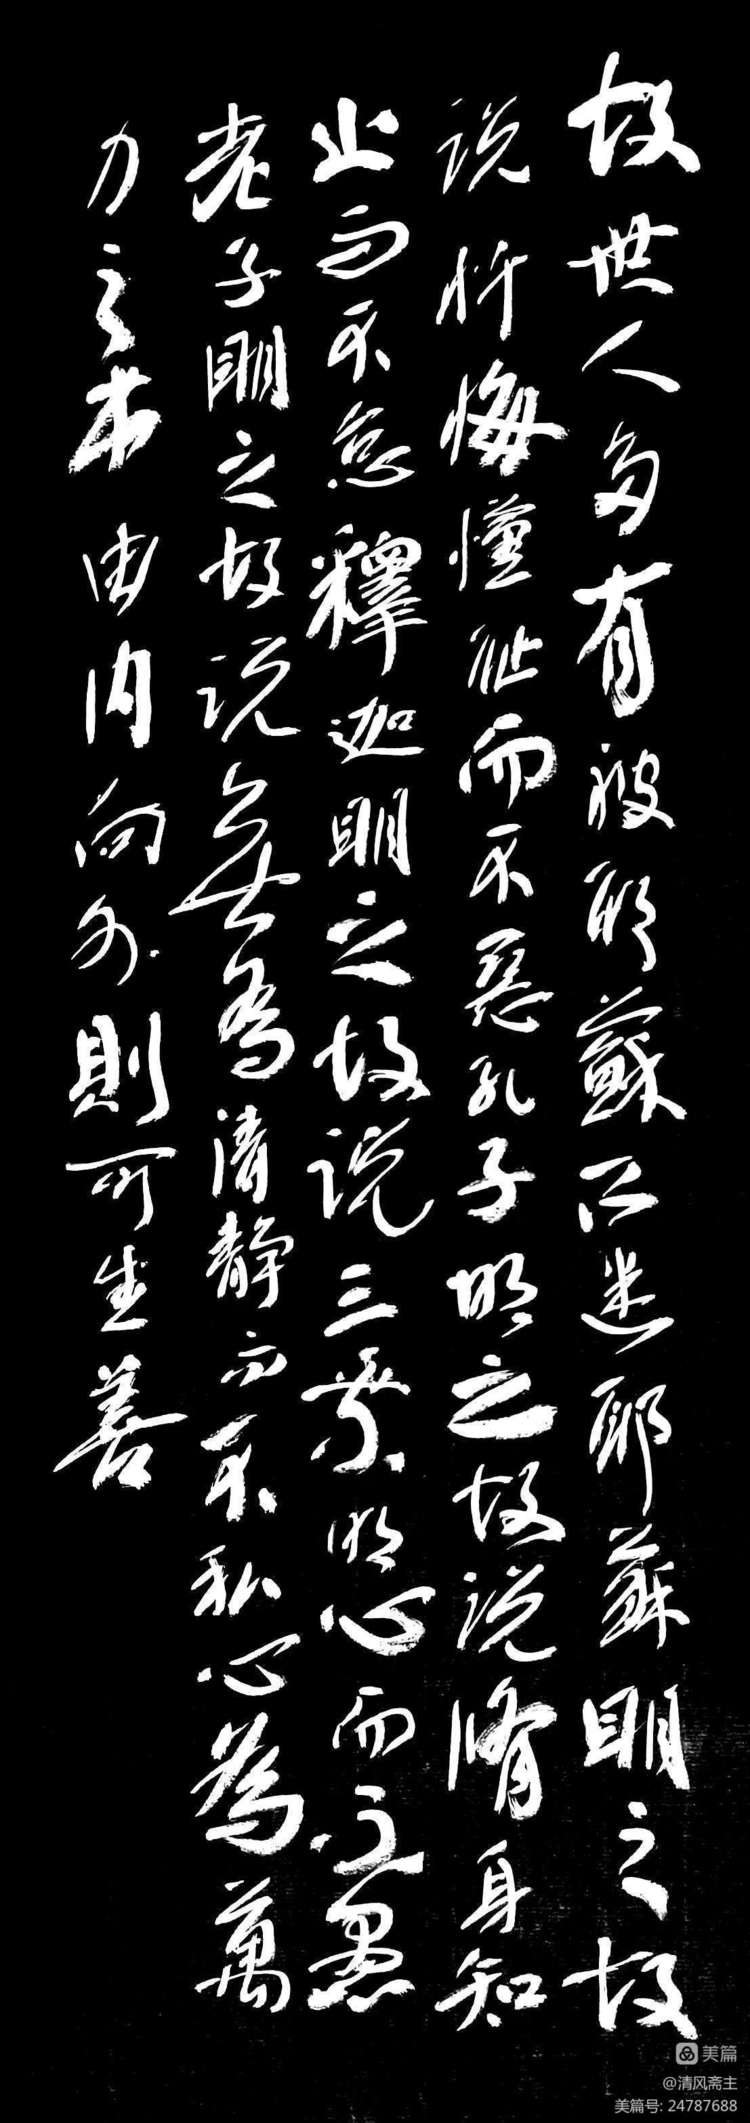 故世人多有被耶蘇所迷耶蘇明之故
说忏悔懂礼而不惡孔子明之故说脩身知
止而不怠釋迦明之故说三業明心而不愚
老子明之故说無為清静而不私心為萬
力之本由内向外則可生善
美篇
@清风斋主
美篇号: 24787688